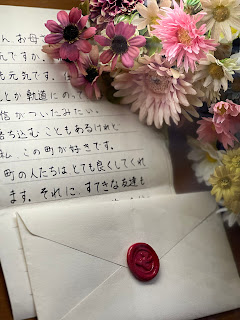 ん お母
元ですか。
も元気です。仕
とか軌道にのって
信がついたみたい。
落ち込むこともあるけれど
私、この町が好きです。
町の人たちは とても良くしてくれ
ます。それに、すてきな友達も